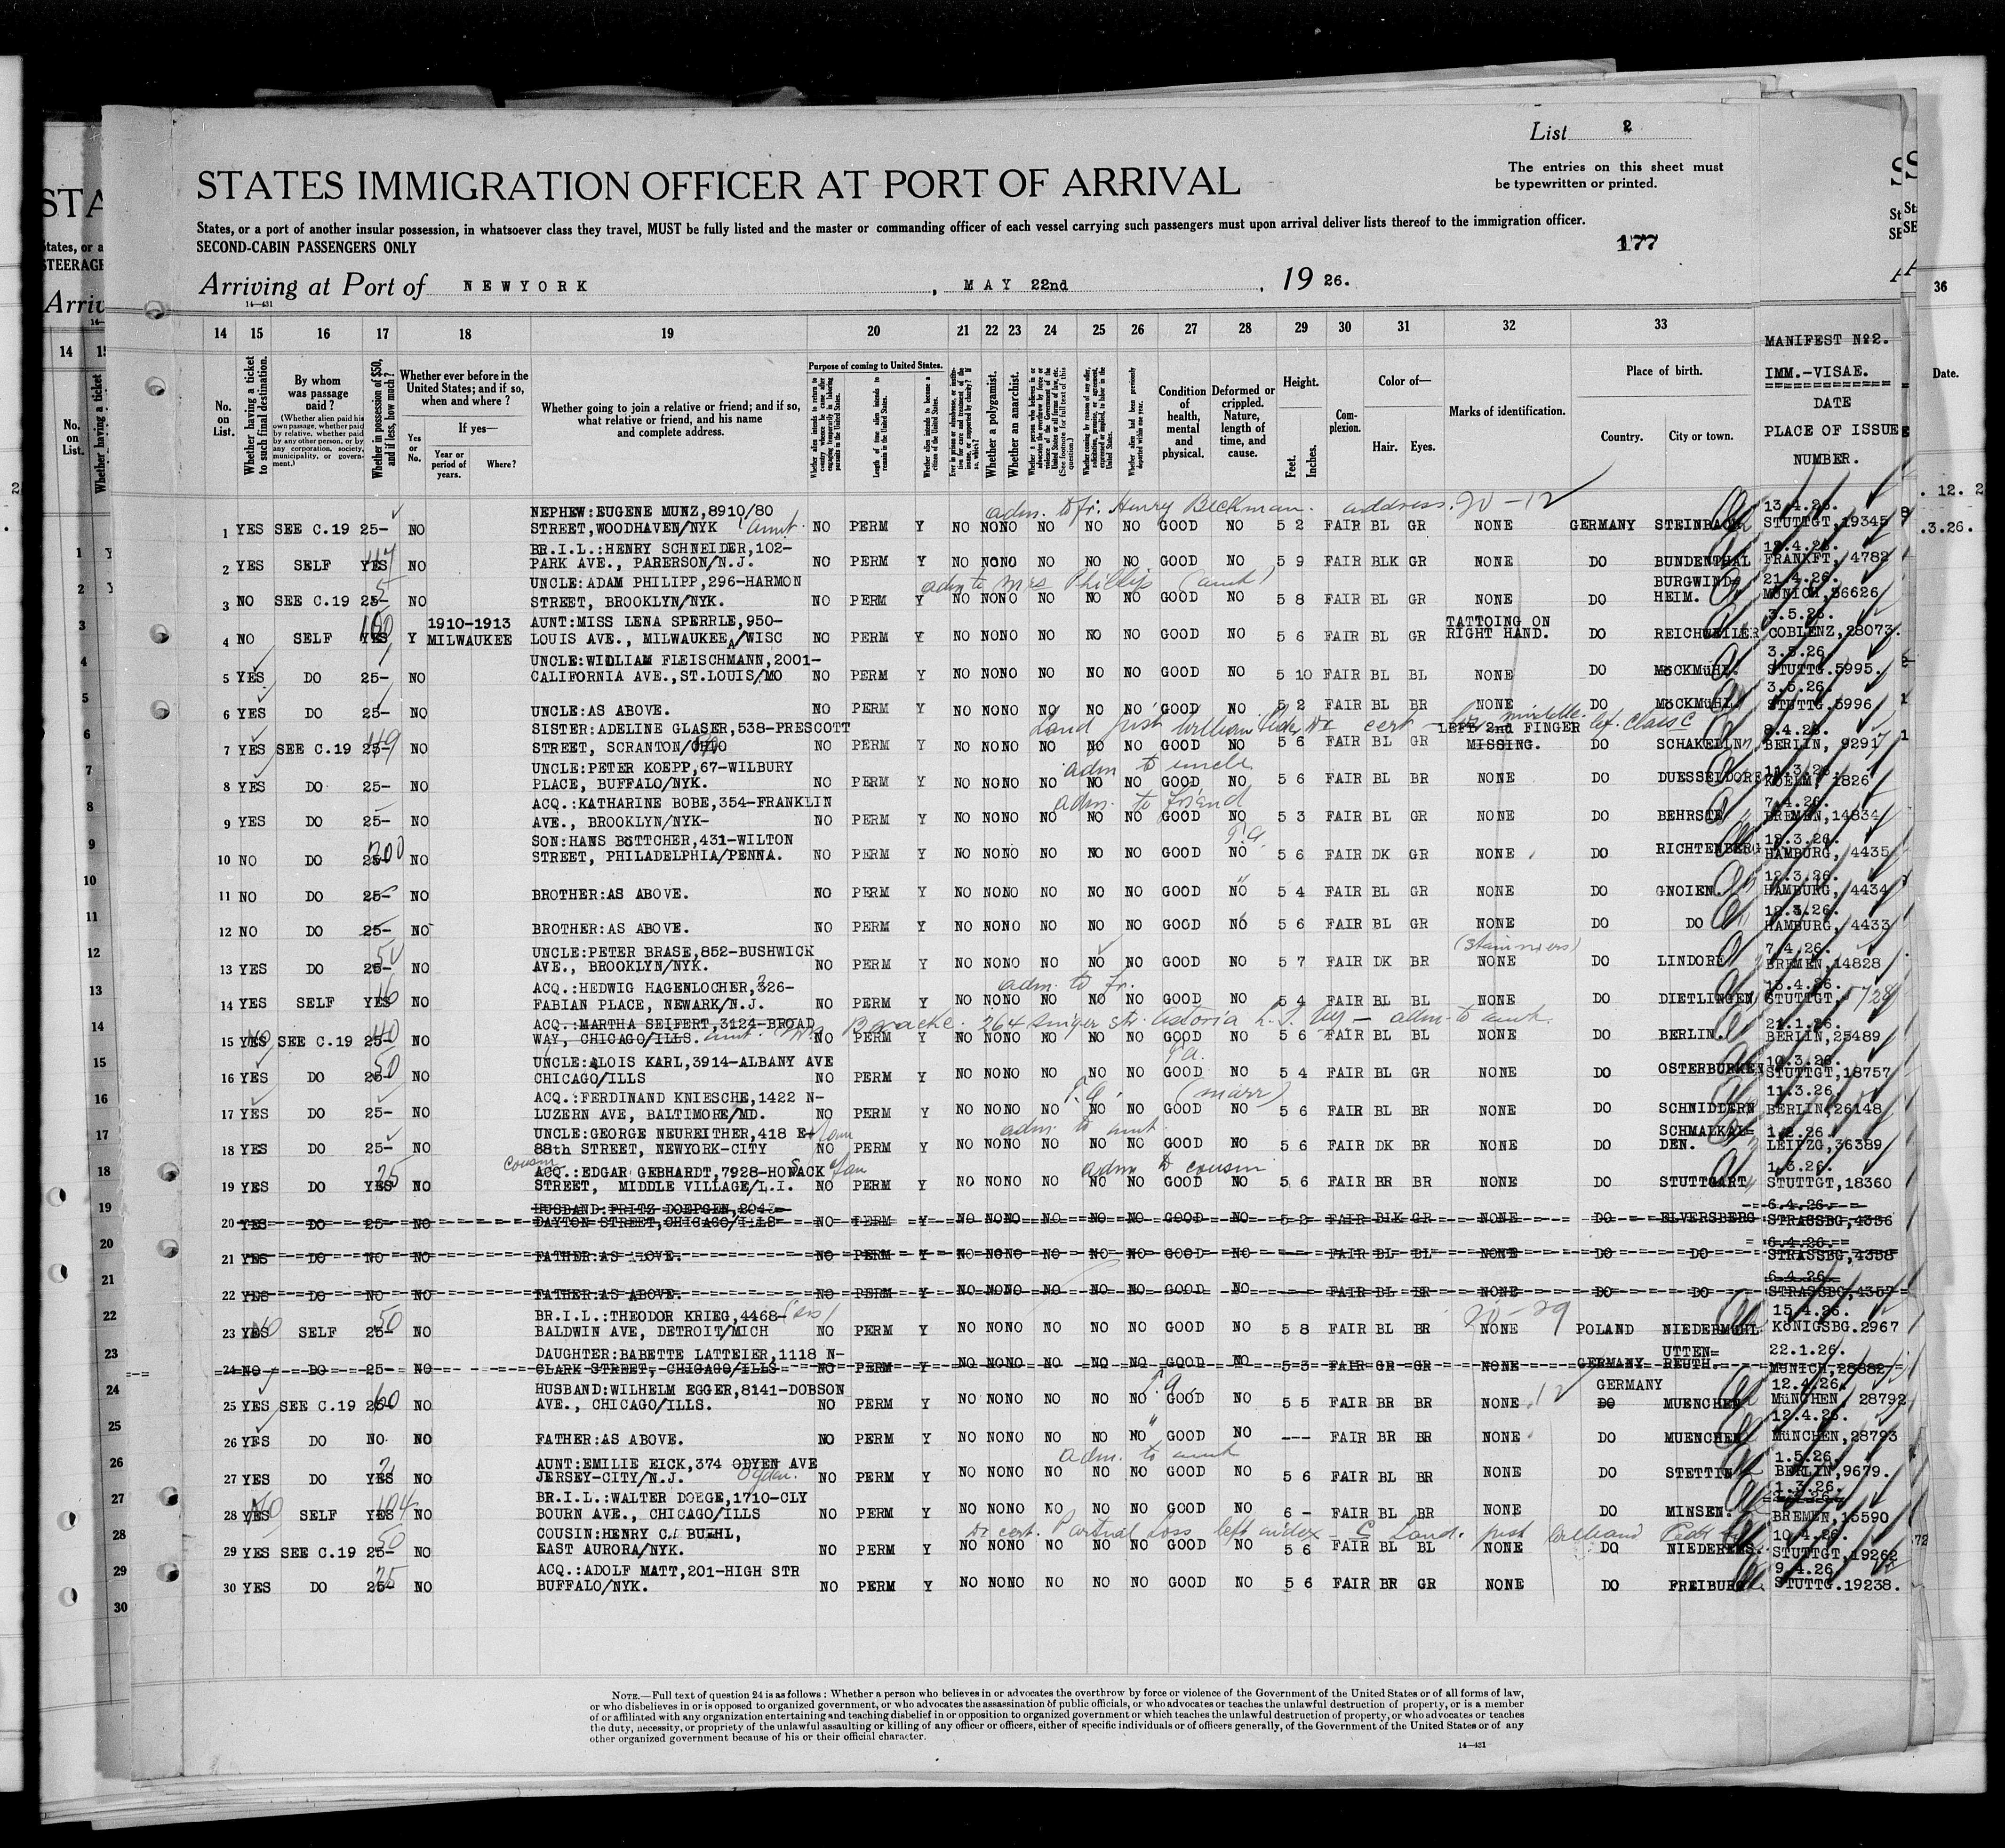 List 2
The entries on this sheet must
be typewritten or printed.
STATES IMMIGRATION OFFICER AT PORT OF ARRIVAL
States, or a port of another insular possession, in whatsoever class they travel, MUST be fully listed and the master or commanding officer of each vessel carrying such passengers must upon arrival deliver lists thereof to the immigration officer.
SECOND-CABIN PASSENGERS ONLY
177
Arriving at Port of NEWYORK, MAY 22nd, 19 26.
14—431
14 15 16 17 18 19 20 21 22 23 24 25 26 27 28 29 30 31 32 33
MANIFEST No2.
IMM.-VISAE.
DATE
PLACE OF ISSUE
NUMBER.
No. on List.
Whether having a ticket to such final destination.
By whom was passage paid?
(Whether alien paid his own passage, whether paid by relative, whether paid by any other person, or by any corporation, society, municipality, or government.)
Whether in possession of $50, and if less, how much?
Whether ever before in the United States; and if so, when and where?
Yes or No.
If yes—
Year or period of years.
Where?
Whether going to join a relative or friend; and if so, what relative or friend, and his name and complete address.
Purpose of coming to United States.
Length of time alien intends to remain in the United States.
Whether alien intends to become a citizen of the United States.
Whether a polygamist.
Whether an anarchist.
Condition of health, mental and physical.
Deformed or crippled. Nature, length of time, and cause.
Height.
Feet. Inches.
Complexion.
Color of—
Hair. Eyes.
Marks of identification.
Place of birth.
Country. City or town.
adm. to fr. Henry Beckman. address. 20-12
NEPHEW:EUGENE MUNZ,8910/80 13.4.26.
1 YES SEE C.19 25- NO STREET,WOODHAVEN/NYK (aunt. NO PERM Y NO NO NO NO NO NO GOOD NO 5 2 FAIR BL GR NONE GERMANY STEINBACH STUTTGT,19345
BR.I.L.:HENRY SCHNEIDER,102-
2 YES SELF YES NO PARK AVE., PARERSON/N.J. NO PERM Y NO NO NO NO NO NO GOOD NO 5 9 FAIR BLK GR NONE DO BUNDENTHAL FRANKFT, 4782
adm to Mrs Phillip (aunt)
UNCLE:ADAM PHILIPP,296-HARMON BURGWIND= 21.4.26.
3 NO SEE C.19 25- NO STREET, BROOKLYN/NYK. NO PERM Y NO NO NO NO NO NO GOOD NO 5 8 FAIR BL GR NONE DO HEIM. MUNICH,36626
100 1910-1913 AUNT:MISS LENA SPERRLE,950- TATTOING ON 3.5.26.
4 NO SELF YES Y MILWAUKEE LOUIS AVE., MILWAUKEE/WISC NO PERM Y NO NO NO NO NO NO GOOD NO 5 6 FAIR BL GR RIGHT HAND. DO REICHWEILER COBLENZ,28073.
UNCLE:WILLIAM FLEISCHMANN,2001- 3.5.26.
5 YES DO 25- NO CALIFORNIA AVE.,ST.LOUIS/MO NO PERM Y NO NO NO NO NO NO GOOD NO 5 10 FAIR BL BL NONE DO MöCKMüHL. STUTTG.5995.
3.5.26.
6 YES DO 25- NO UNCLE:AS ABOVE. NO PERM Y NO NO NO NO NO NO GOOD NO 5 2 FAIR BL BR NONE DO MöCKMüHL. STUTTG.5996
SISTER:ADELINE GLASER,538-PRESCOTT LEFT 2nd FINGER 8.4.26.
7 YES SEE C.19 25- NO STREET, SCRANTON/OHIO NO PERM Y NO NO NO NO NO NO GOOD NO 5 6 FAIR BL GR MISSING. DO SCHAKELLN BERLIN, 9291
adm to uncle
UNCLE:PETER KOEPP,67-WILBURY 11.3.26.
8 YES DO 25- NO PLACE, BUFFALO/NYK. NO PERM Y NO NO NO NO NO NO GOOD NO 5 6 FAIR BL BR NONE DO DUESSELDORF KOELN, 1826
adm. to friend
ACQ.:KATHARINE BOBE,354-FRANKLIN 7.4.26.
9 YES DO 25- NO AVE., BROOKLYN/NYK- NO PERM Y NO NO NO NO NO NO GOOD NO 5 3 FAIR BL GR NONE DO BEHRSTE BREMEN,14834
SON:HANS BöTTCHER,431-WILTON 12.3.26.
10 NO DO 25- 200 NO STREET, PHILADELPHIA/PENNA. NO PERM Y NO NO NO NO NO NO GOOD NO 5 6 FAIR DK GR NONE DO RICHTENBERG HAMBURG, 4435
12.3.26.
11 NO DO 25- NO BROTHER:AS ABOVE. NO PERM Y NO NO NO NO NO NO GOOD NO 5 4 FAIR BL GR NONE DO GNOIEN. HAMBURG, 4434
12.3.26.
12 NO DO 25- NO BROTHER:AS ABOVE. NO PERM Y NO NO NO NO NO NO GOOD NO 5 6 FAIR BL GR NONE DO DO HAMBURG, 4433
50 UNCLE:PETER BRASE,852-BUSHWICK (stammers) 7.4.26.
13 YES DO 25- NO AVE., BROOKLYN/NYK. NO PERM Y NO NO NO NO NO NO GOOD NO 5 7 FAIR DK BR NONE DO LINDORF BREMEN,14828
adm. to fr.
ACQ.:HEDWIG HAGENLOCHER,326-
14 YES SELF YES NO FABIAN PLACE, NEWARK/N.J. NO PERM Y NO NO NO NO NO NO GOOD NO 5 4 FAIR BL BL NONE DO DIETLINGEN STUTTGT.
ACQ.:MARTHA SEIFERT,3124-BROAD 264 Singer str. Astoria L.I. NY — adm. to aunt.
15 YES SEE C.19 25- 40 NO WAY, CHICAGO/ILLS. aunt. NO PERM Y NO NO NO NO NO NO GOOD NO 5 6 FAIR BL BL NONE DO BERLIN. BERLIN,25489
50 UNCLE:ALOIS KARL,3914-ALBANY AVE 10.3.26.
16 YES DO 25- NO CHICAGO/ILLS NO PERM Y NO NO NO NO NO NO GOOD NO 5 4 FAIR BL GR NONE DO OSTERBURKEN STUTTGT,18757
ACQ.:FERDINAND KNIESCHE,1422 N- (marr) 11.3.26.
17 YES DO 25- NO LUZERN AVE, BALTIMORE/MD. NO PERM Y NO NO NO NO NO NO GOOD NO 5 6 FAIR BL BR NONE DO SCHNIDDERN BERLIN,26148
adm. to aunt
UNCLE:GEORGE NEUREITHER,418 E- SCHMALKAL= 1.2.26.
18 YES DO 25- NO 88th STREET, NEWYORK-CITY NO PERM Y NO NO NO NO NO NO GOOD NO 5 6 FAIR DK BR NONE DO DEN. LEIPZG,36389
Cousin adm to cousin
ACQ.:EDGAR GEBHARDT,7928-HONSACK 1.3.26.
19 YES DO YES NO STREET, MIDDLE VILLAGE/L.I. NO PERM Y NO NO NO NO NO NO GOOD NO 5 6 FAIR BR BR NONE DO STUTTGART STUTTGT,18360
HUSBAND:FRITZ DOEPGEN,2043- 6.4.26.
20 YES DO 25- NO DAYTON STREET,CHICAGO/ILLS NO PERM Y NO NO NO NO NO NO GOOD NO 5 2 FAIR BLK GR NONE DO ELVERSBERG STRASSBG,4336
6.4.26.
21 YES DO NO NO FATHER:AS ABOVE. NO PERM Y NO NO NO NO NO NO GOOD NO FAIR BL BL NONE DO DO STRASSBG,4358
6.4.26.
22 YES DO NO NO FATHER:AS ABOVE. NO PERM Y NO NO NO NO NO NO GOOD NO FAIR BL BR NONE DO DO STRASSBG,4357
50 BR.I.L.:THEODOR KRIEG,4468- 15.4.26.
23 YES SELF 25- NO BALDWIN AVE, DETROIT/MICH NO PERM Y NO NO NO NO NO NO GOOD NO 5 8 FAIR BL BR NONE POLAND NIEDERMÜHL KöNIGSBG.2967
DAUGHTER:BABETTE LATTEIER,1118 N- UTTEN= 22.1.26.
24 NO DO 25- NO CLARK STREET, CHICAGO/ILLS NO PERM Y NO NO NO NO NO NO GOOD NO 5 3 FAIR GR GR NONE GERMANY REUTH. MUNICH,28882
HUSBAND:WILHELM EGGER,8141-DOBSON GERMANY 12.4.26.
25 YES SEE C.19 60 NO AVE., CHICAGO/ILLS. NO PERM Y NO NO NO NO NO NO GOOD NO 5 5 FAIR BR BR NONE DO MUENCHEN MüNCHEN 28792
12.4.26.
26 YES DO NO NO FATHER:AS ABOVE. NO PERM Y NO NO NO NO NO NO GOOD NO --- FAIR BR BR NONE DO MUENCHEN MüNCHEN,28793
adm. to aunt
AUNT:EMILIE EICK,374 ODYEN AVE 1.5.26.
27 YES DO YES NO JERSEY-CITY/N.J. Ogden. NO PERM Y NO NO NO NO NO NO GOOD NO 5 6 FAIR BL BR NONE DO STETTIN BERLIN,9679.
BR.I.L.:WALTER DOEGE,1710-CLY 1.3.26.
28 YES SELF YES 104 NO BOURN AVE., CHICAGO/ILLS NO PERM Y NO NO NO NO NO NO GOOD NO 6 - FAIR BL BR NONE DO MINSEN. BREMEN,15590
50 COUSIN:HENRY C. BUEHL, Dr cert. Partial loss left index 10.4.26.
29 YES SEE C.19 25- NO EAST AURORA/NYK. NO PERM Y NO NO NO NO NO NO GOOD NO 5 6 FAIR BL BL NONE DO STUTTGT,19262
ACQ.:ADOLF MATT,201-HIGH STR 9.4.26
30 YES DO 25- NO BUFFALO/NYK. NO PERM Y NO NO NO NO NO NO GOOD NO 5 6 FAIR BR GR NONE DO FREIBURG STUTTG.19238.
NOTE.—Full text of question 24 is as follows: Whether a person who believes in or advocates the overthrow by force or violence of the Government of the United States or of all forms of law,
or who disbelieves in or is opposed to organized government, or who advocates the assassination of public officials, or who advocates or teaches the unlawful destruction of property, or is a member
of or affiliated with any organization entertaining and teaching disbelief in or opposition to organized government or which teaches the unlawful destruction of property, or who advocates or teaches
the duty, necessity, or propriety of the unlawful assaulting or killing of any officer or officers, either of specific individuals or of officers generally, of the Government of the United States or of any
other organized government because of his or their official character.
14—431